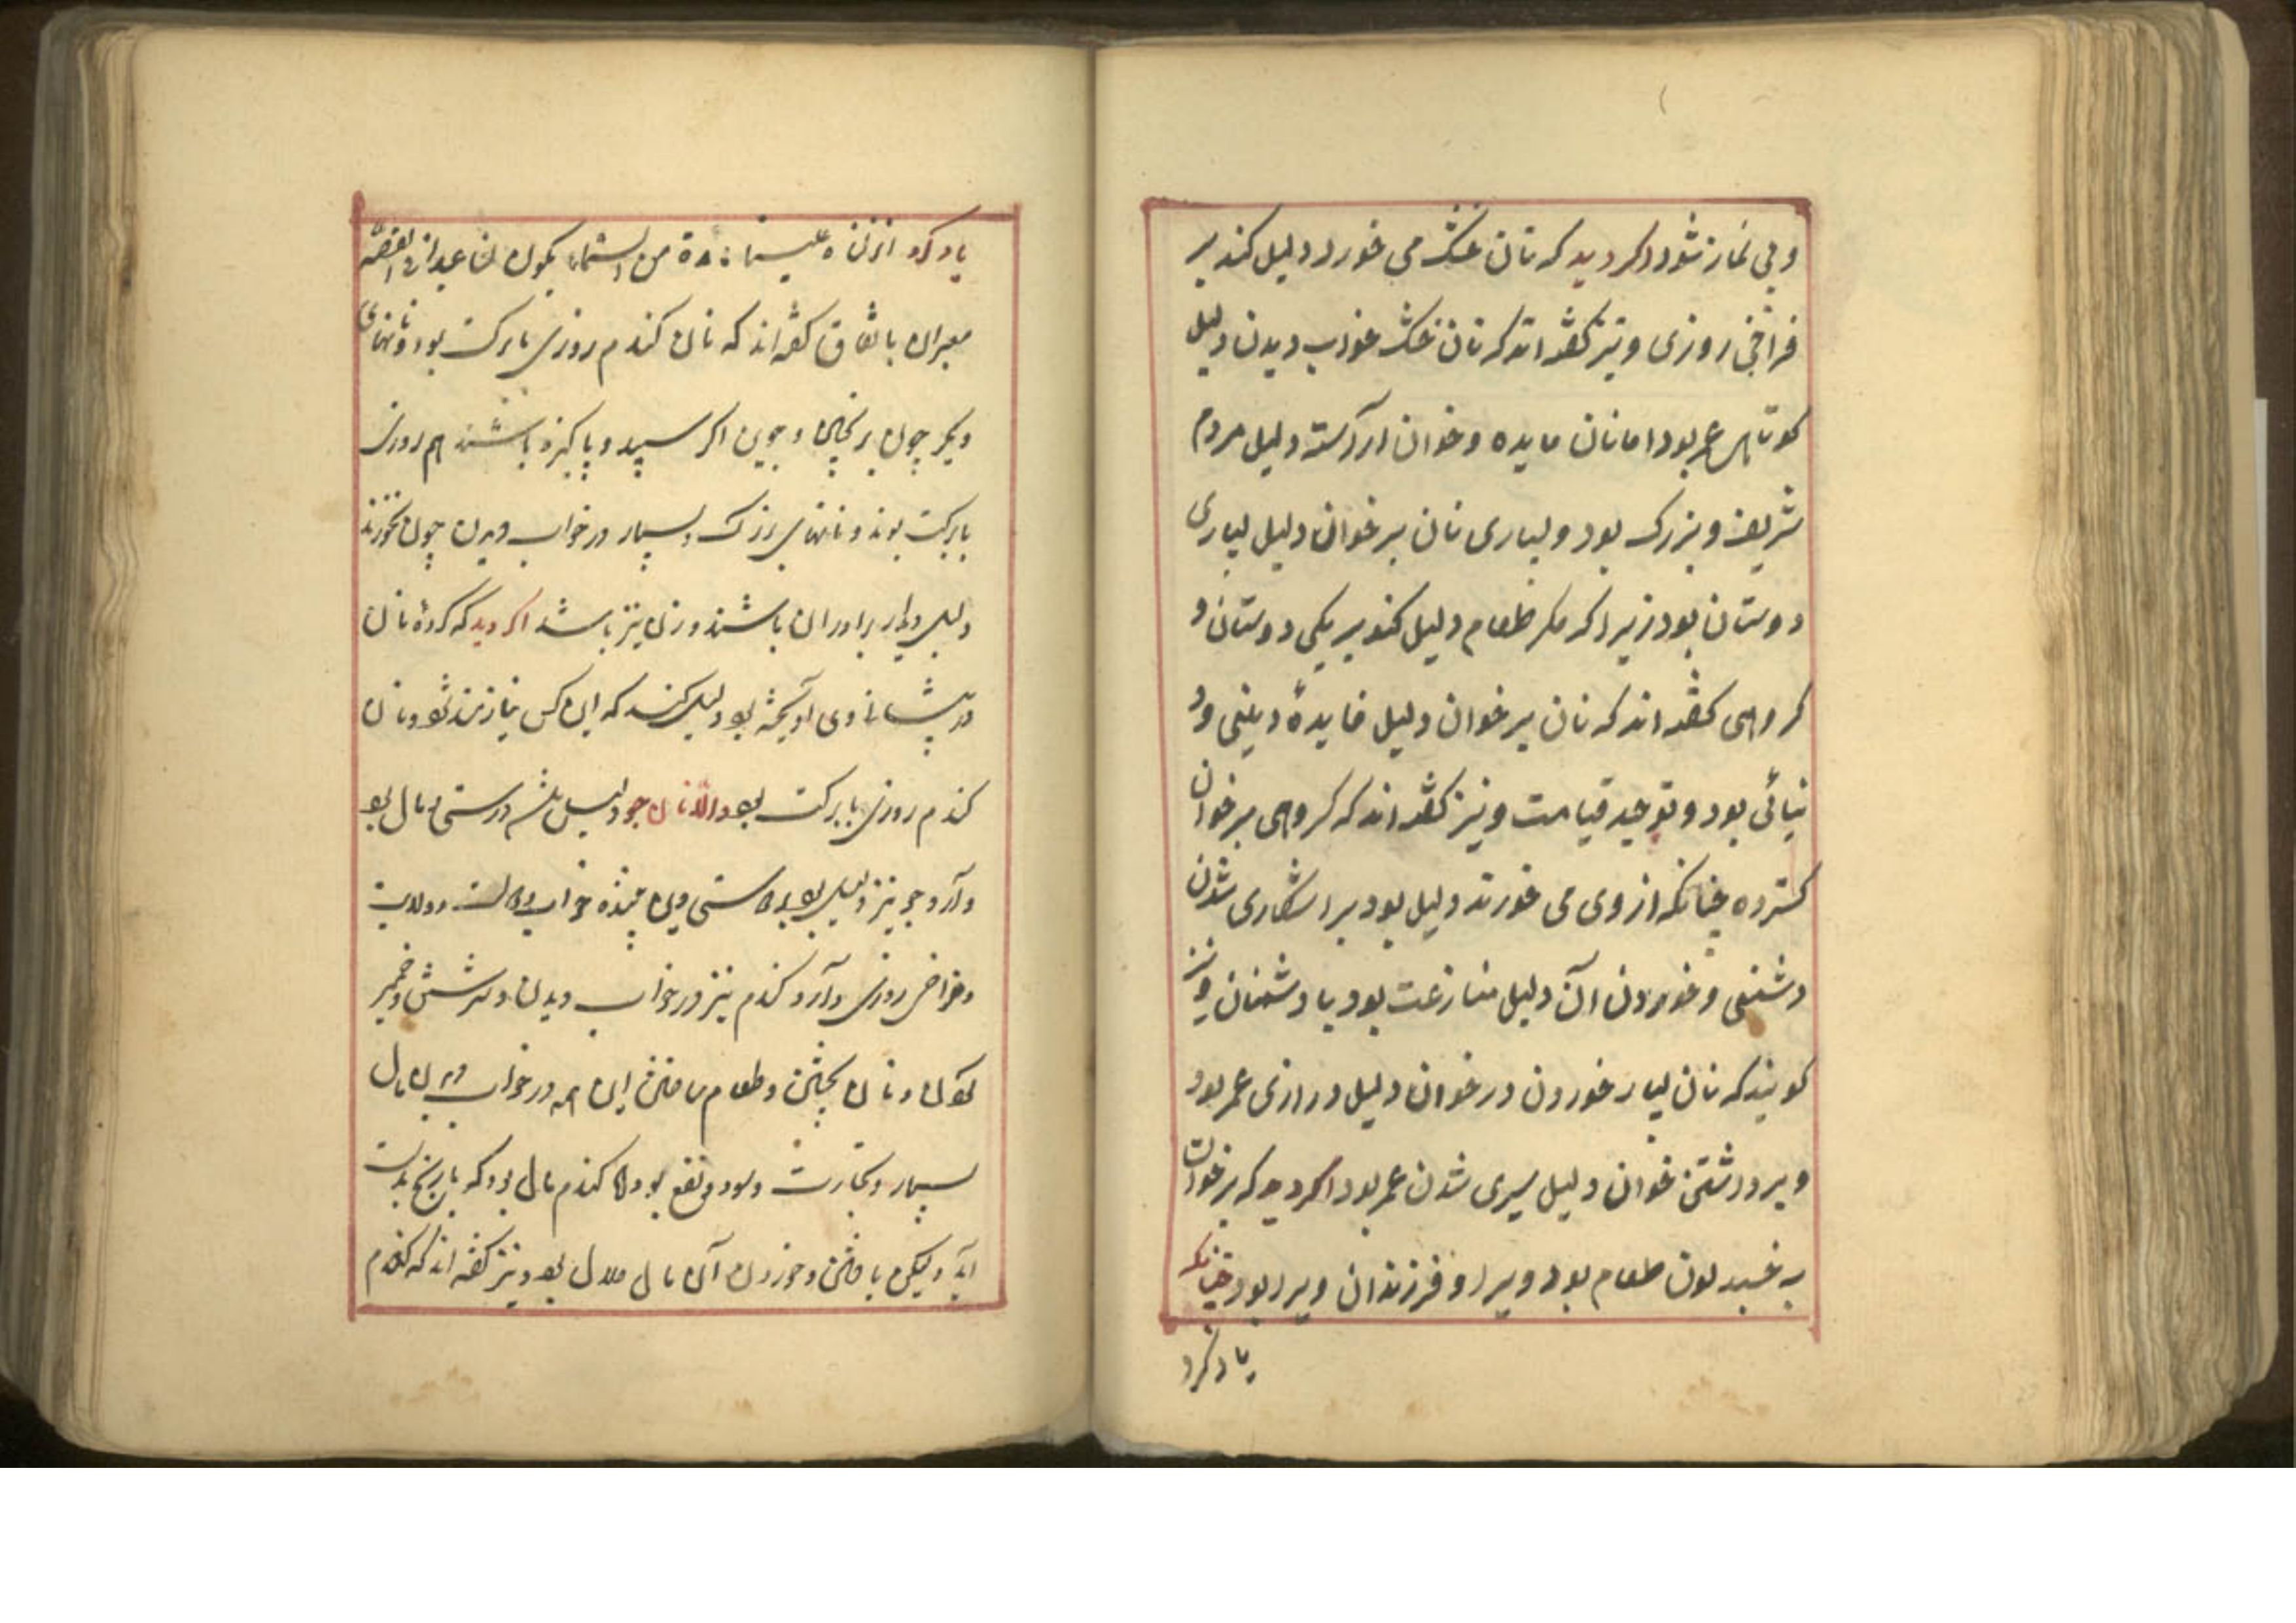 و بی نماز شود اکر دید که نان خشک می خورد دلیل کند بر
فراخی روزی و نیز کفته اند که نان خشک خواب دیدن دلیل
کوتاهی عمر بود اما نان مایده و خوان آراسته دلیل مردم
شریف و بزرک بود و بسیاری نان بر خوان دلیل بسیاری
دوستان بود زیرا که مکر طعام دلیل کند بر یکی دوستان و
کروهی کفته اند که نان بر خوان دلیل فایدهٔ دینی و د
نیائی بود و توحید قیامت و نیز کفته اند که کروهی بر خوان
کسترده چنانکه از وی می خورند دلیل بود بر اشکاری شدن
دشمنی و خوردن آن دلیل منازعت بود با دشمنان و نیز
کویند که نان بسیار خوردن در خوان دلیل درازی عمر بود
و برداشتن خوان دلیل سپری شدن عمر بود اکر دید که بر خوان
به طعام بود ویرا و فرزندان ویرا بود چنانکه
یاد کرد
یاد کرد انزل علینا مائدة من السماء یکون لنا عیدا القصّه
معبران باتفاق کفته اند که نان کندم روزی با برکت بود و نانهای
دیکر چون برنجین و جوین اکر سپید و پاکیزه باشند هم روزی
با برکت بوند و نانهای بزرک و بسیار در خواب دیدن چون نخورند
دلیل دیدار برادران باشند و زن نیز باشد اکر دید که کردهٔ نان
در پیشانی وی آویخته بود دلیل کند که این کس نیازمند شود و نان
کندم روزی با برکت بود و اما نان جو دلیل درستی و مال بود
و آرد جو نیز دلیل بود بر درستی دین بیننده خواب و ولایت
و فراخی روزی و آرد کندم نیز در خواب دیدن و سرشتن و خمیر
کردن و نان پختن و طعام ساختن این همه در خواب دیدن مال
بسیار و تجارت و سود و نفع بود اما کندم مال بود که با رنج بدست
آید و لیکن یافتن و خوردن آن مال حلال بود و نیز کفته اند که کندم